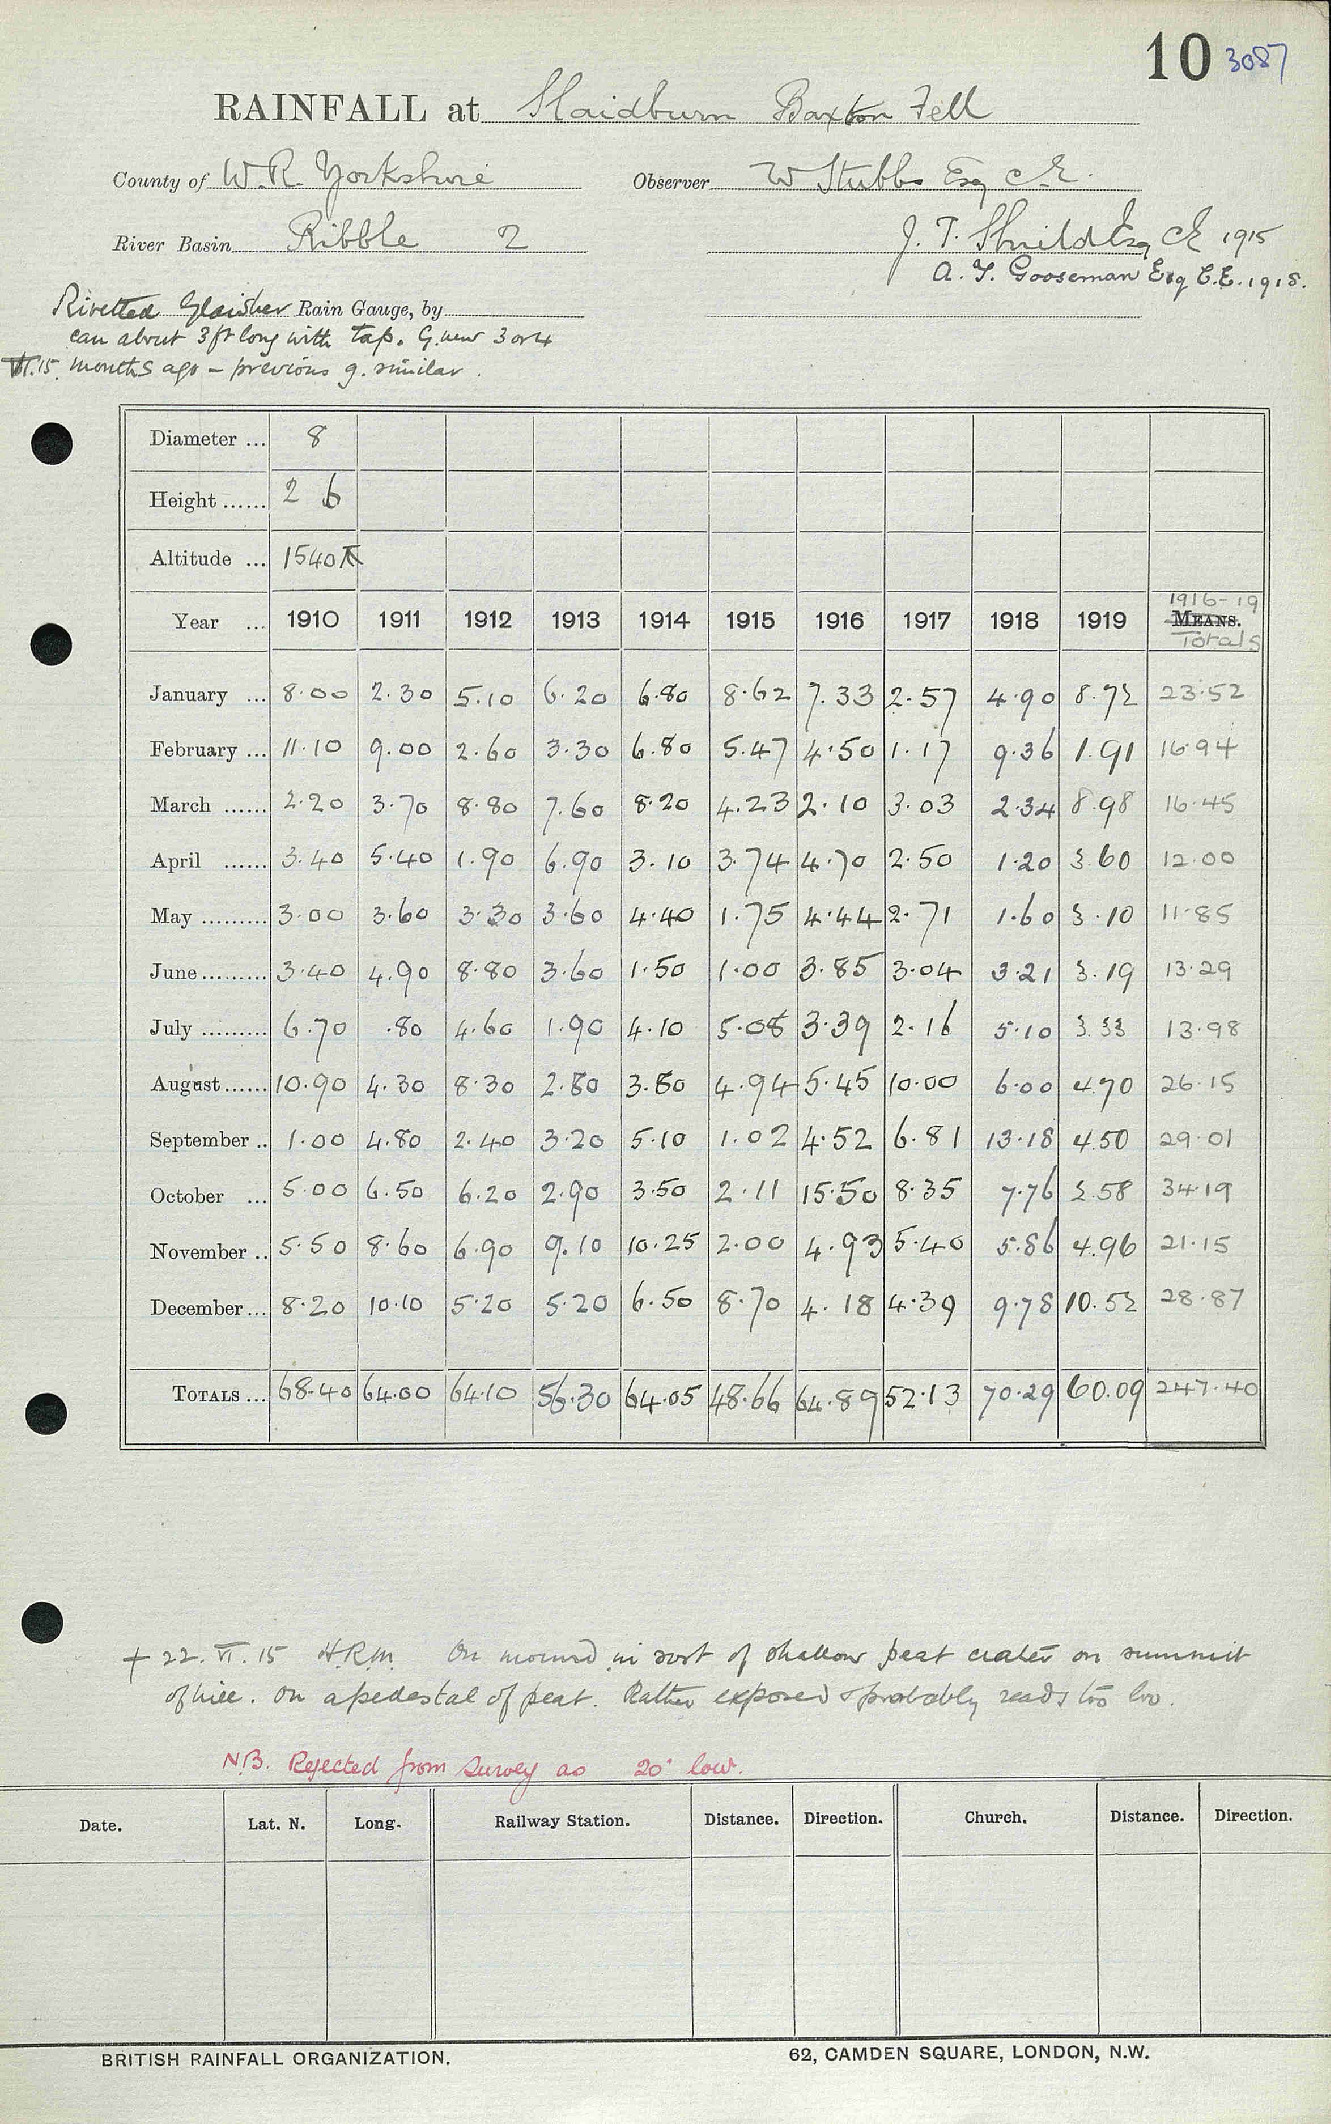 10 3087
RAINFALL at Slaidburn Baxton Fell
County of W.R. Yorkshire Observer W Stubbs Esq C.E.
River Basin Ribble 2 J. T. Shuild Esq CE 1915
A. F. Gooseman Esq C.E. 1918.
Rivetted Glaisher Rain Gauge, by
can about 3 ft long with tap. G. new 3 or 4
VI.15. months ago – previous g. similar.
Diameter ... 8
Height ...... 2 6
Altitude ... 1540
Year ... 1910 1911 1912 1913 1914 1915 1916 1917 1918 1919 1916-19 MEANS. Totals
January ... 8.00 2.30 5.10 6.20 6.80 8.62 7.33 2.57 4.90 8.72 23.52
February ... 11.10 9.00 2.60 3.30 6.80 5.47 4.50 1.17 9.36 1.91 16.94
March ...... 2.20 3.70 8.80 7.60 8.20 4.23 2.10 3.03 2.34 8.98 16.45
April ...... 3.40 5.40 1.90 6.90 3.10 3.74 4.70 2.50 1.20 3.60 12.00
May ......... 3.00 3.60 3.30 3.60 4.40 1.75 4.44 2.71 1.60 3.10 11.85
June ......... 3.40 4.90 8.80 3.60 1.50 1.00 3.85 3.04 3.21 3.19 13.29
July ......... 6.70 .80 4.60 1.90 4.10 5.08 3.39 2.16 5.10 3.33 13.98
August ...... 10.90 4.30 8.30 2.80 3.80 4.94 5.45 10.00 6.00 4.70 26.15
September .. 1.00 4.80 2.40 3.20 5.10 1.02 4.52 6.81 13.18 4.50 29.01
October ... 5.00 6.50 6.20 2.90 3.50 2.11 15.50 8.35 7.76 2.58 34.19
November .. 5.50 8.60 6.90 9.10 10.25 2.00 4.93 5.40 5.86 4.96 21.15
December ... 8.20 10.10 5.20 5.20 6.50 8.70 4.18 4.39 9.78 10.52 28.87
TOTALS ... 68.40 64.00 64.10 56.30 64.05 48.66 64.89 52.13 70.29 60.09 247.40
+ 22.VI.15 H.R.M. On mound in sort of shallow peat crater on summit
of hill. On a pedestal of peat. Rather exposed & probably reads too low.
N.B. Rejected from Survey as 20% low.
Date. Lat. N. Long. Railway Station. Distance. Direction. Church. Distance. Direction.
BRITISH RAINFALL ORGANIZATION. 62, CAMDEN SQUARE, LONDON, N.W.